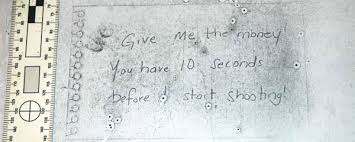 Give me the money
You have 10 seconds
before I start shooting!